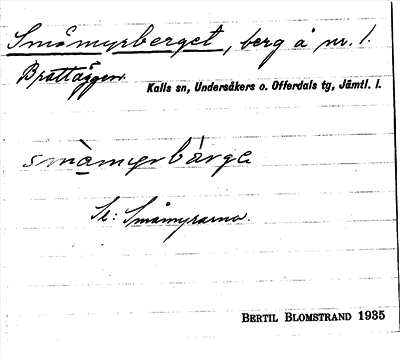 Småmyrberget, berg å nr. 1.
Brattäggen.
Kalls sn, Undersåkers o. Offerdals tg, Jämtl. l.
smàmyrbárge
Se: Småmyrarna.
BERTIL BLOMSTRAND 1935